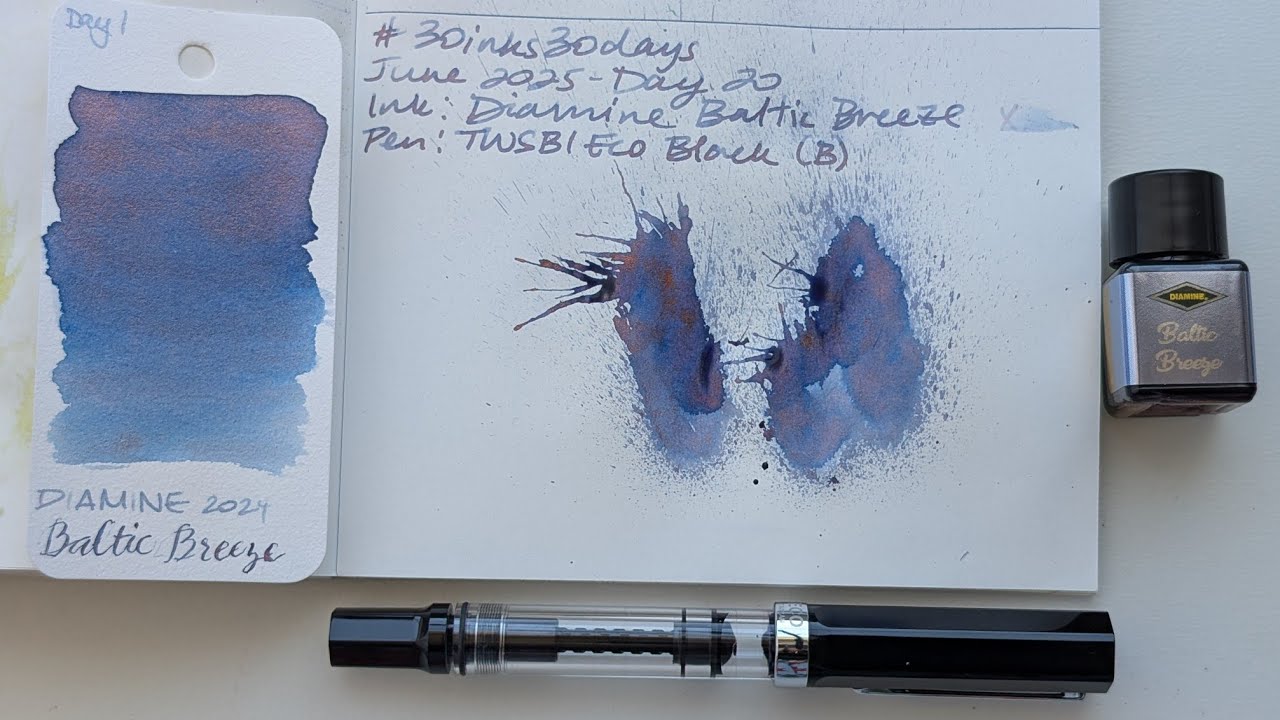 Day 1
DIAMINE 2024
Baltic Breeze
# 30inks30days
June 2025 - Day 20
Ink: Diamine Baltic Breeze X
Pen: TWSBI Eco Black (B)
DIAMINE
Baltic
Breeze